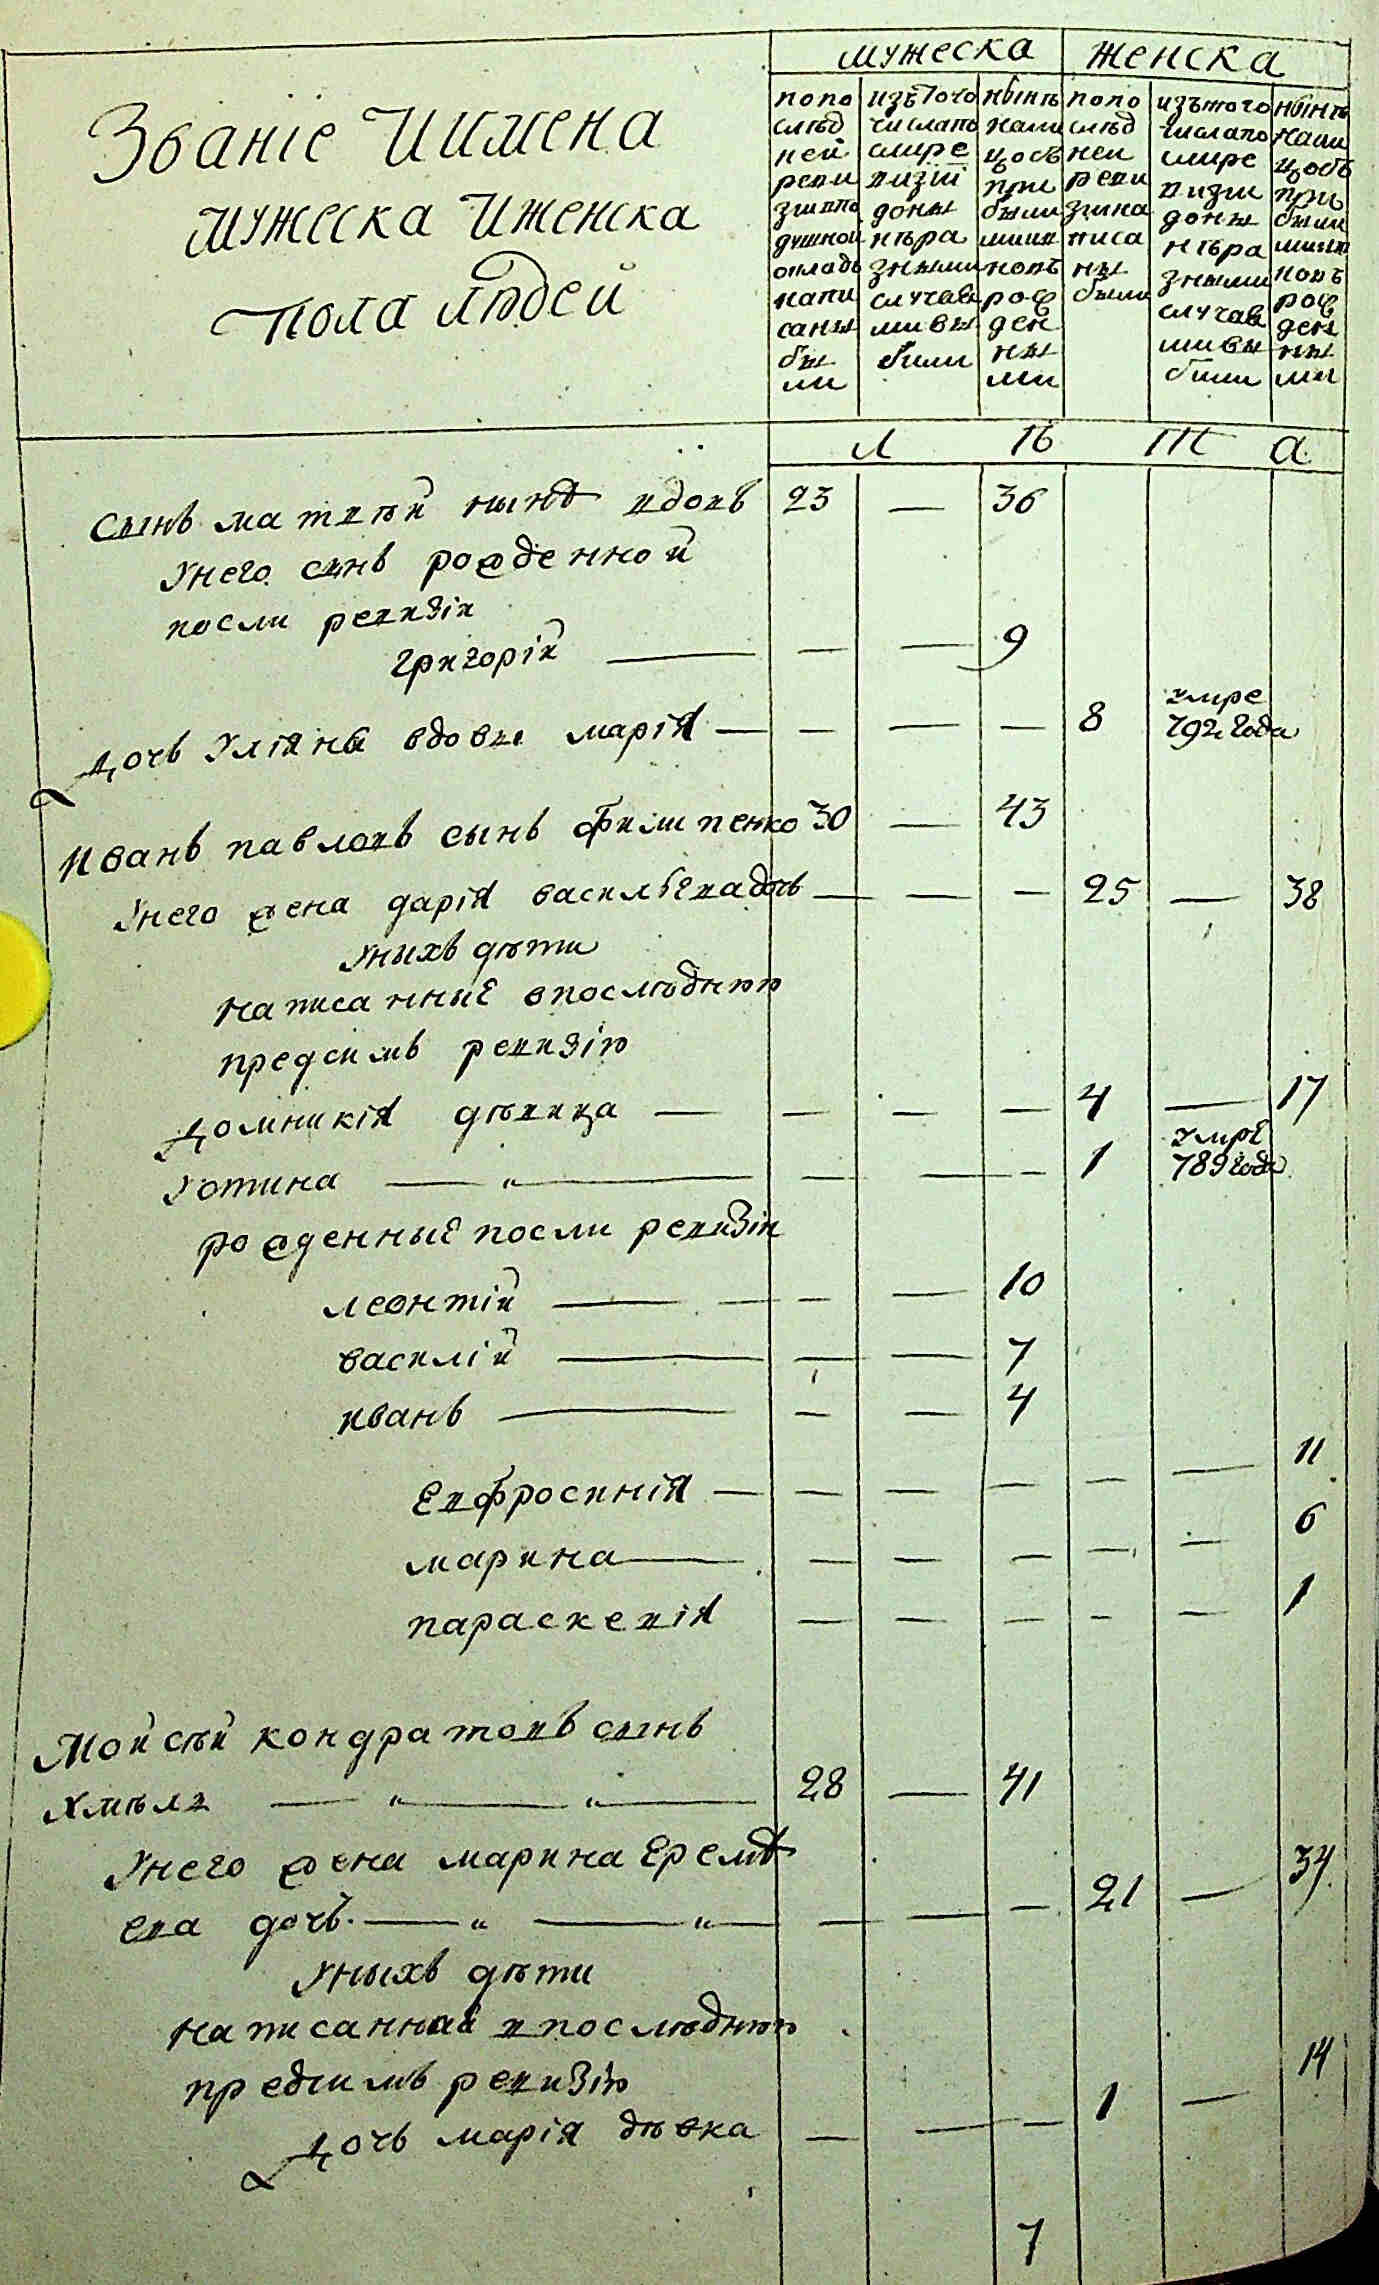 мужеска женска
Званіе И имена
мужеска И женска
пола людей
попо
слѣд
ней
реви
зіи впо
душной
окладъ
напи
саны
бы
ли
изъ того
числа по
слире
визіи
до ны
нѣ ра
зными
случая
ми вы
были
нынѣ
нали
цо съ
при
были
ми и
новъ
рож
ден
ны
ми
попо
слѣд
ней
реви
зіи на
писа
ны
были
изъ того
числа по
слире
визіи
до ны
нѣ ра
зными
случая
ми вы
были
нынѣ
нали
цо съ
при
были
ми и
новъ
рож
ден
ны
ми
Л Ѣ Т А
Сынъ матвѣй нынѣ вдовъ 23 — 36
У него сынъ рожденной
посли ревизіи
Григорій — — — 9
Дочь Уліяны вдовы марія — — — — 8 умре
792 года
Иванъ павловъ сынъ Филипенко 30 — 43
У него жена дарія васильева дочь — — — 25 — 38
У ныхъ дѣти
Написанныѣ в послѣднюю
предсимъ ревизію
Домникія дѣвица — — — — 4 — 17
Устина — " — — — — 1 умрѣ
789 года
рожденныѣ посли ревизіи
леонтій — — — 10
василій — — — 7
иванъ — — — 4
Евфросинія — — — — — — 11
марина — — — — — — 6
параскевія — — — — — 1
Мойсѣй кондратовъ сынъ
Хмѣль — " — " — 28 — 41
У него жена марина Еремѣ
ева дочь. — " — " — — — — 21 — 34
У ныхъ дѣти
Написанныѣ в послѣднюю
предсимъ ревизію
Дочь марія дѣвка — — — 1 — 14
7